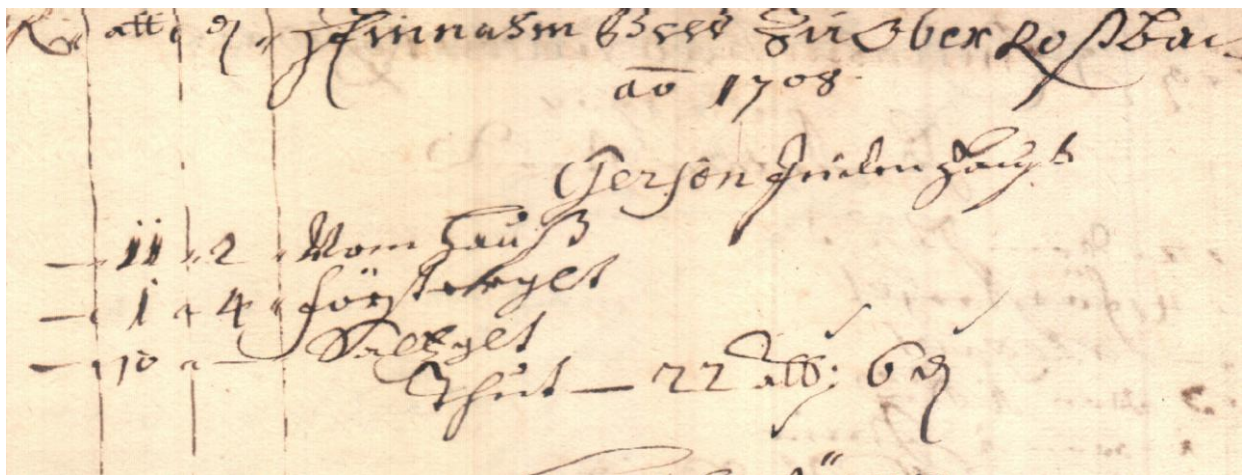 R alb ₰ Einnahm Geld Zu Ober Roßbac
ao 1708
Gerson Juden Hauß
11 2 Vom Hauß
1 4 förstergelt
10 — Saltzgelt
Thut — 22 alb: 6 ₰